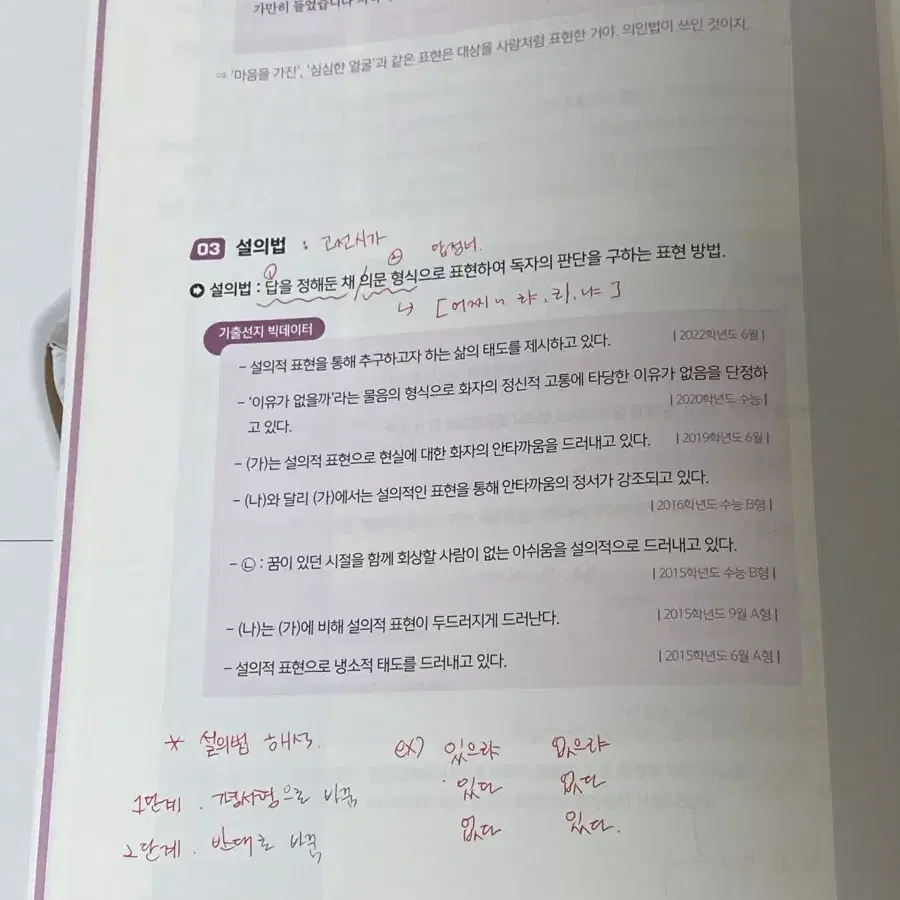 가만히 들었습니다
⇒ '마음을 가진', '심심한 얼굴'과 같은 표현은 대상을 사람처럼 표현한 거야. 의인법이 쓰인 것이지.
03 설의법 : 고전시가
① ② 답정너.
설의법 : 답을 정해둔 채 의문 형식으로 표현하여 독자의 판단을 구하는 표현 방법.
↳ [어찌 ~ 랴, 리, 냐]
기출선지 빅데이터
- 설의적 표현을 통해 추구하고자 하는 삶의 태도를 제시하고 있다. | 2022학년도 6월 |
- '이유가 없을까'라는 물음의 형식으로 화자의 정신적 고통에 타당한 이유가 없음을 단정하
고 있다. | 2020학년도 수능 |
- (가)는 설의적 표현으로 현실에 대한 화자의 안타까움을 드러내고 있다. | 2019학년도 6월 |
- (나)와 달리 (가)에서는 설의적인 표현을 통해 안타까움의 정서가 강조되고 있다.
| 2016학년도 수능 B형 |
- ㉡ : 꿈이 있던 시절을 함께 회상할 사람이 없는 아쉬움을 설의적으로 드러내고 있다.
| 2015학년도 수능 B형 |
- (나)는 (가)에 비해 설의적 표현이 두드러지게 드러난다. | 2015학년도 9월 A형 |
- 설의적 표현으로 냉소적 태도를 드러내고 있다. | 2015학년도 6월 A형 |
* 설의법 해석. ex) 있으랴 없으랴
1단계. 평서형으로 바꿈 있다 없다
2단계. 반대로 바꿈 없다 있다.